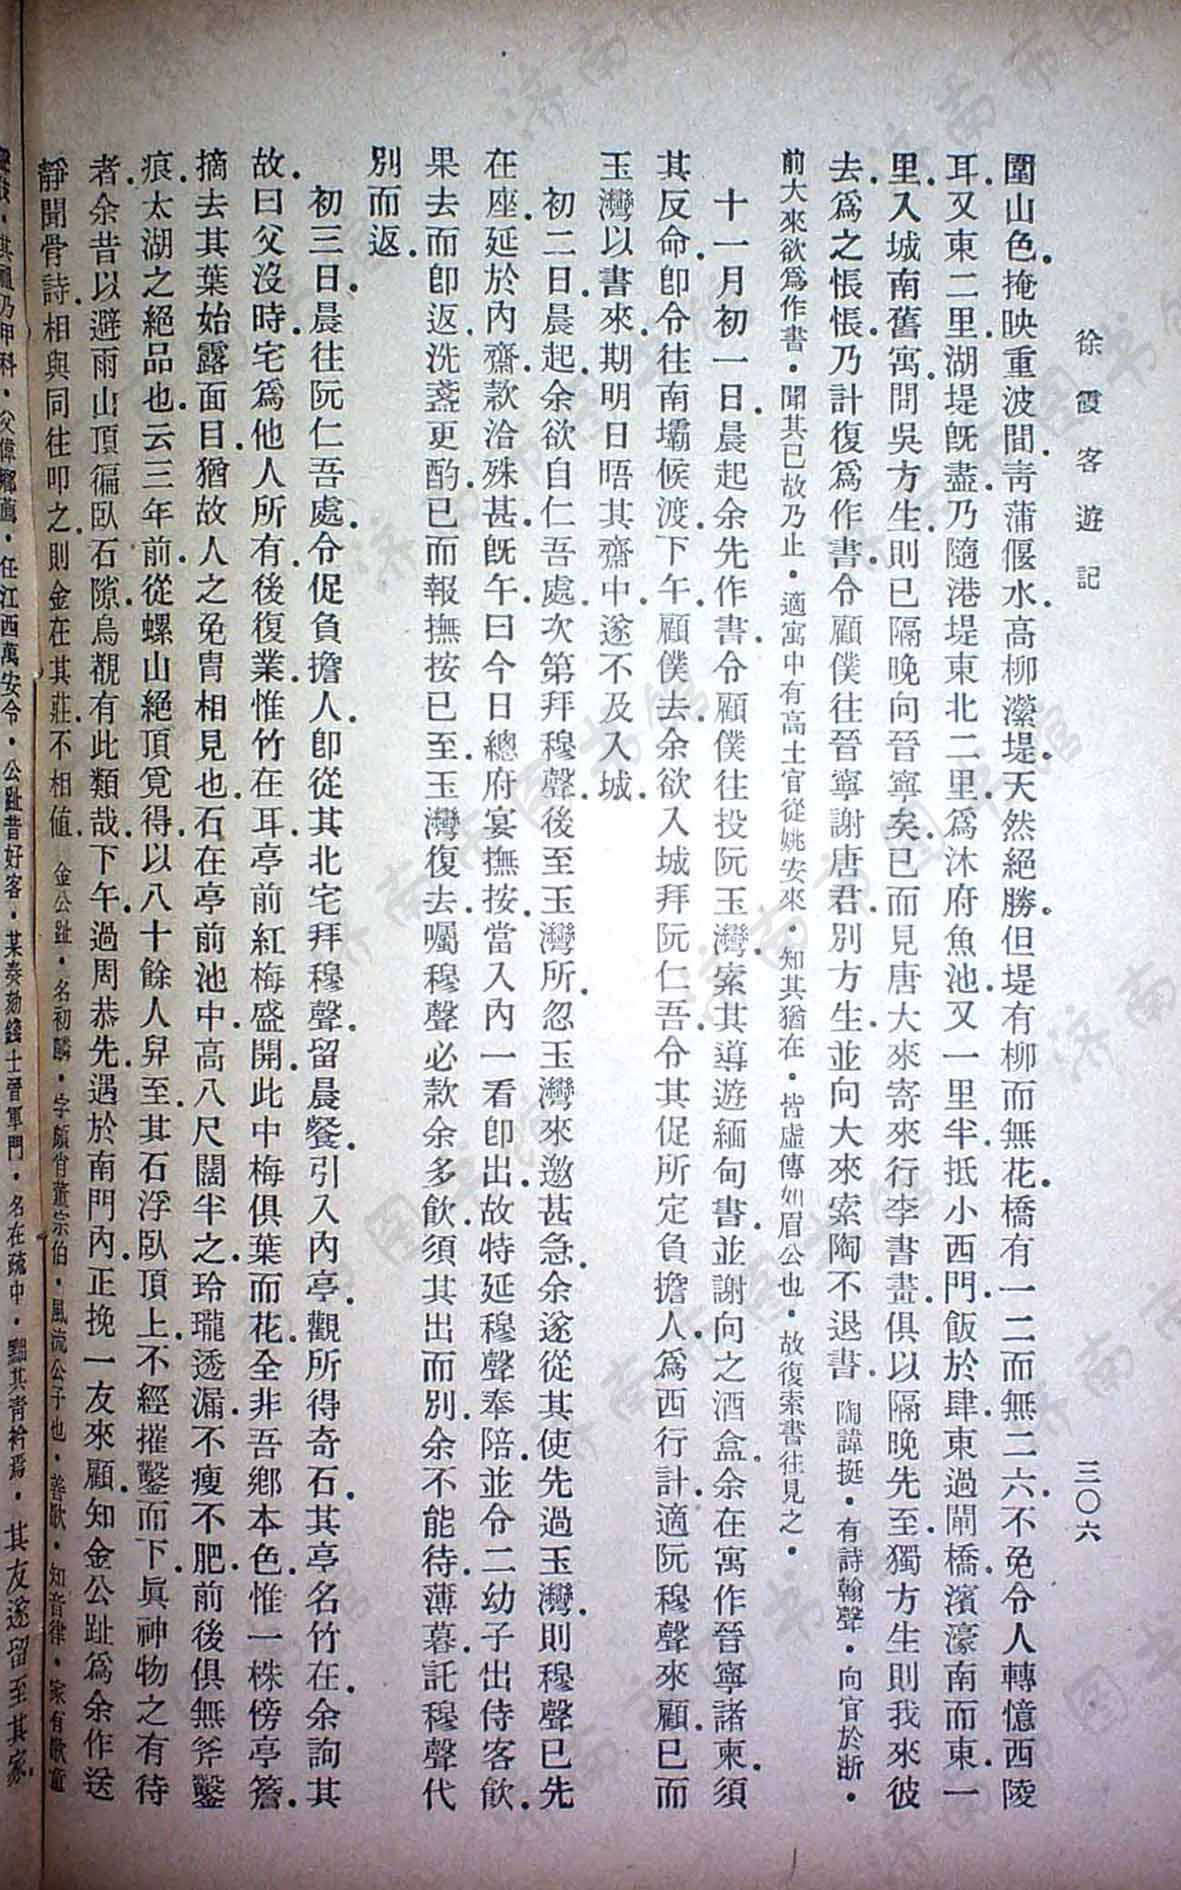 徐霞客遊記
三〇六
圍山色。掩映重波間。靑蒲偃水。高柳瀠堤。天然絕勝。但堤有柳而無花。橋有一二而無二六。不免令人轉憶西陵
耳。又東二里。湖堤旣盡。乃隨港堤東北二里。爲沐府魚池。又一里半。抵小西門。飯於肆。東過閘橋。濱濠南而東。一
里。入城南舊寓。問吳方生。則已隔晚向晉寧矣。已而見唐大來寄來行李書畫。俱以隔晚先至。獨方生則我來彼
去。爲之悵悵。乃計復爲作書。令顧僕往晉寧謝唐君。別方生。並向大來索陶不退書。陶諱挺・有詩翰聲・向官於浙・
前大來欲爲作書・聞其已故乃止・適寓中有高士官從姚安來・知其猶在・皆虛傳如眉公也・故復索書往見之・
十一月初一日。晨起。余先作書。令顧僕往投阮玉灣。索其導遊緬甸書。並謝向之酒盒。余在寓作晉寧諸柬。須
其反命。卽令往南壩候渡。下午。顧僕去。余欲入城拜阮仁吾。令其促所定負擔人。爲西行計。適阮穆聲來顧。已而
玉灣以書來。期明日晤其齋中。遂不及入城。
初二日。晨起。余欲自仁吾處。次第拜穆聲。後至玉灣所。忽玉灣來邀甚急。余遂從其使先過玉灣。則穆聲已先
在座。延於內齋。款洽殊甚。旣午。曰今日總府宴撫按。當入內一看卽出。故特延穆聲奉陪。並令二幼子出侍客飮。
果去而卽返。洗盞更酌。已而報撫按已至。玉灣復去。囑穆聲必款余多飮。須其出而別。余不能待。薄暮。託穆聲代
別而返。
初三日。晨往阮仁吾處。令促負擔人。卽從其北宅拜穆聲。留晨餐。引入內亭。觀所得奇石。其亭名竹在。余詢其
故。曰父沒時。宅爲他人所有。後復業。惟竹在耳。亭前紅梅盛開。此中梅俱葉而花。全非吾鄉本色。惟一株傍亭簷。
摘去其葉。始露面目。猶故人之免冑相見也。石在亭前池中。高八尺。闊半之。玲瓏透漏。不瘦不肥。前後俱無斧鑿
痕。太湖之絕品也。云三年前。從螺山絕頂覓得。以八十餘人舁至。其石浮臥頂上。不經摧鑿而下。眞神物之有待
者。余昔以避雨山頂。徧臥石隙。烏覩有此類哉。下午。過周恭先。遇於南門內。正挽一友來顧。知金公趾爲余作送
靜聞骨詩。相與同往叩之。則金在其莊。不相値。金公趾・名初麟・字頗肖董宗伯・風流公子也・善歌・知音律・家有歌童
・其祖乃甲科・父偉鄉薦・任江西萬安令・公趾昔好客・某奏劾錢士晉軍門・名在疏中・黜其靑衿焉・其友遂留至其家。